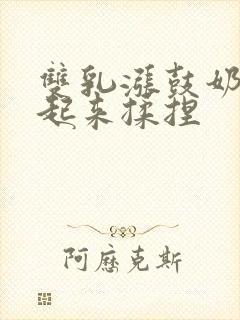 雙乳漲鼓奶
起来揉捏
阿歷克斯